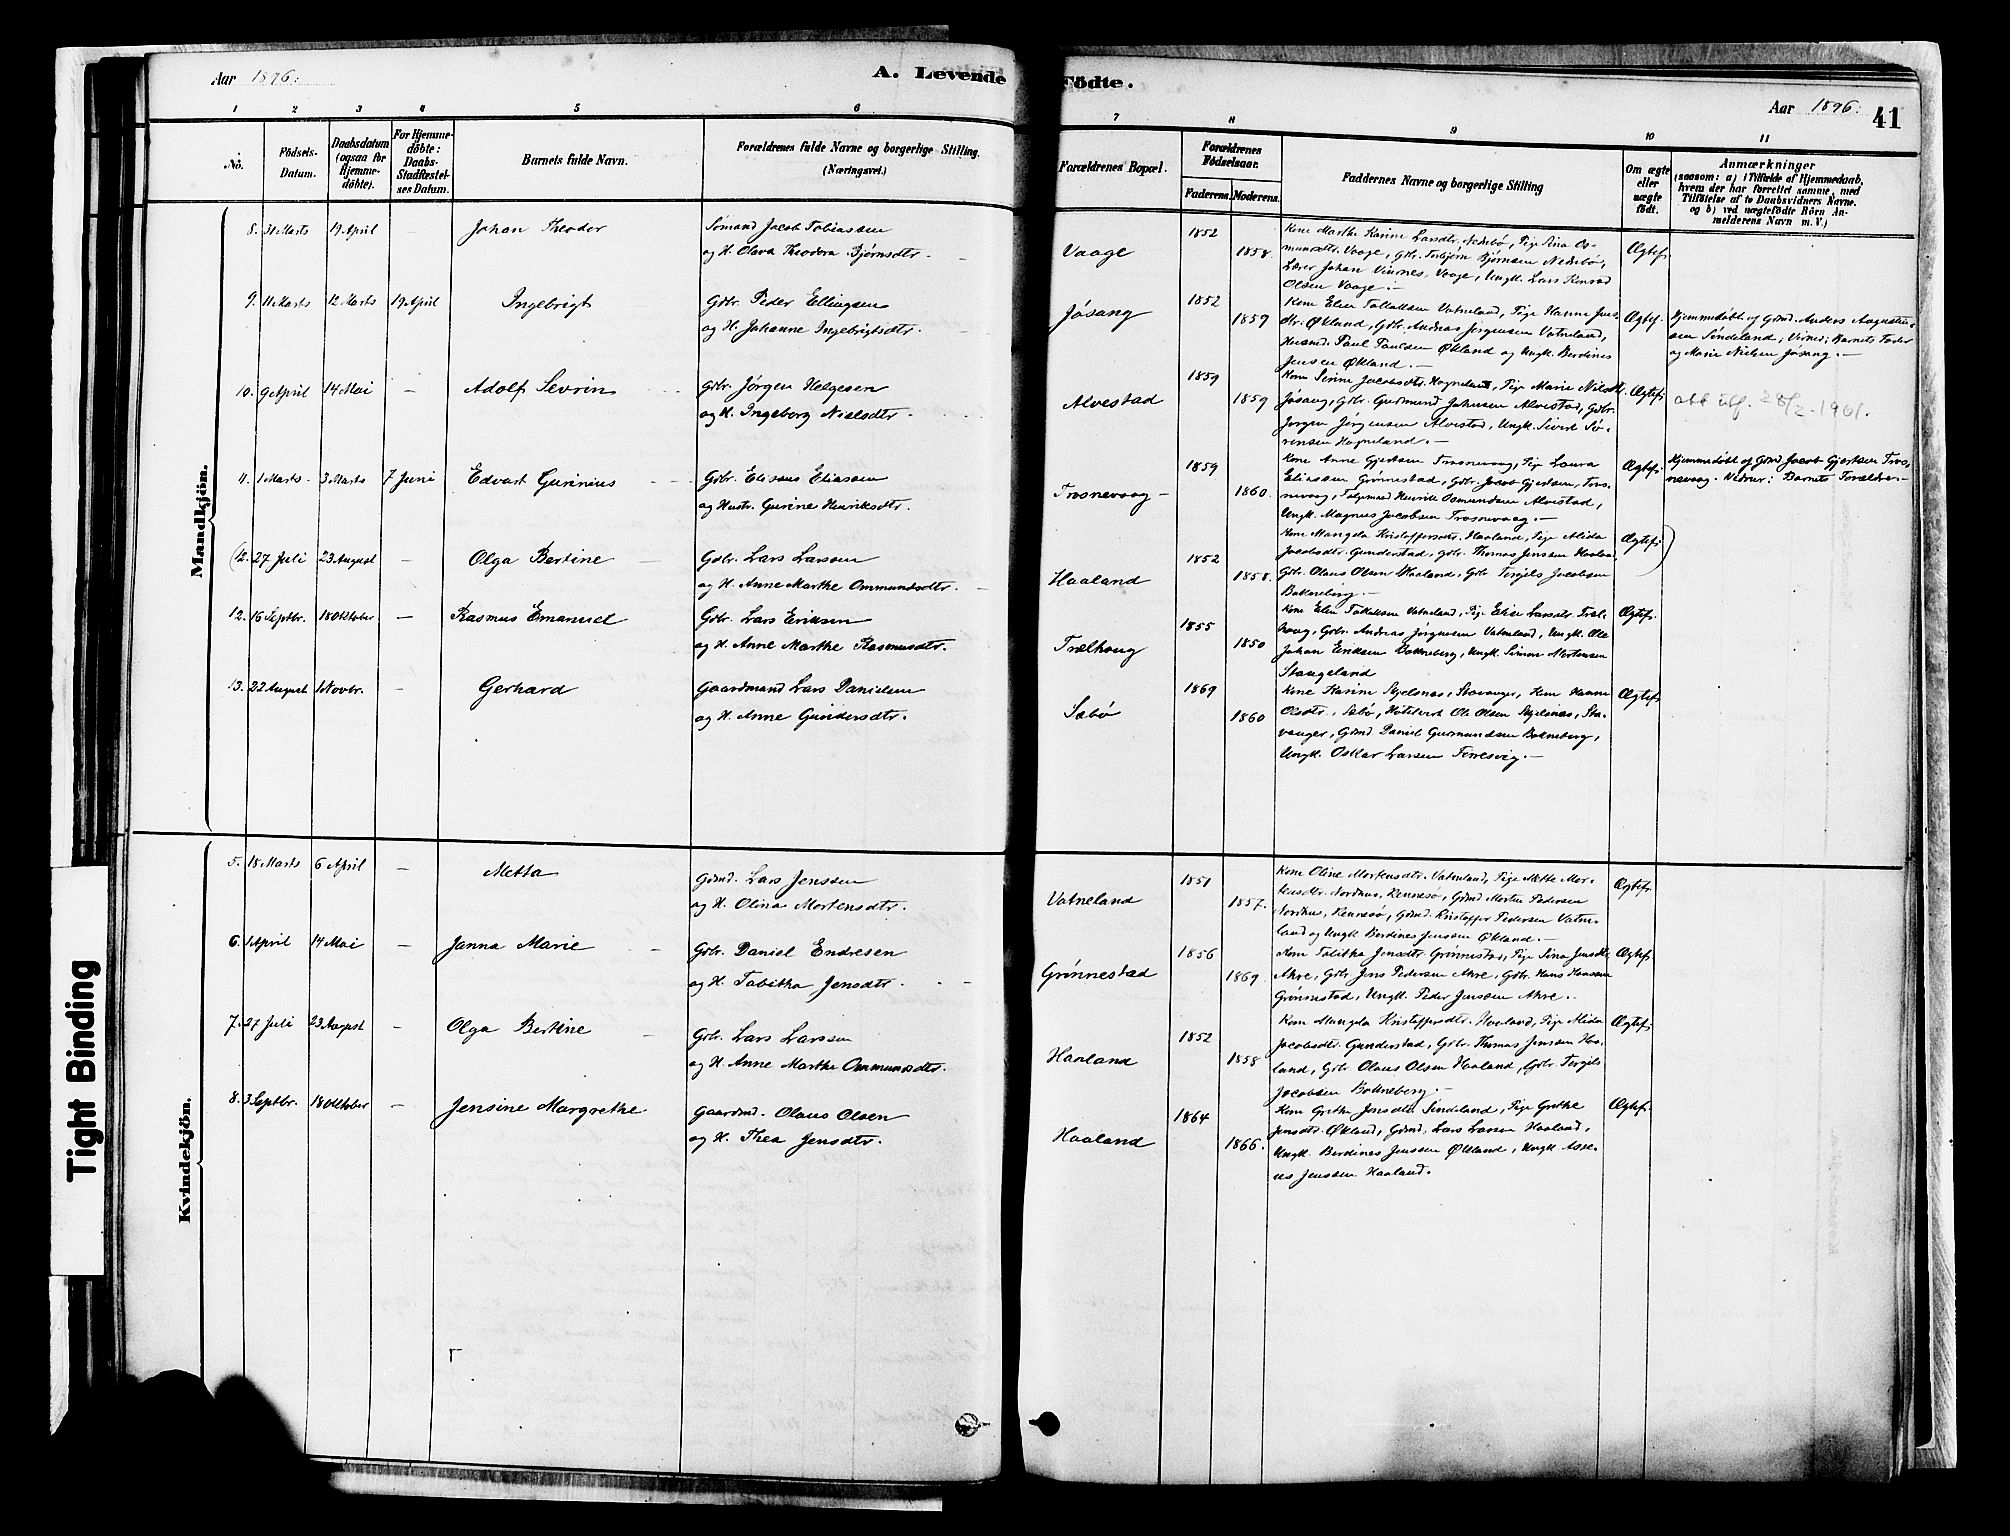 Aar 1896.
A. Levende Födte.
Aar 1896.
41
1 2 3 4 5 6 7 8 9 10 11
No.
Födsels-Datum.
Daabsdatum (ogsaa for Hjemmedöbte).
For Hjemmedöbte: Daabs-Stadfæstelses Datum.
Barnets fulde Navn.
Forældrenes fulde Navne og borgerlige Stilling. (Næringsvei.)
Forældrenes Bopæl.
Forældrenes Födselsaar.
Faderens. Moderens.
Faddernes Navne og borgerlige Stilling
Om ægte eller uægte födt.
Anmærkninger
(saasom: a) i Tilfælde af Hjemmedaab, hvem der har forrettet samme, med Tilföielse af to Daabsvidners Navne. og b) ved uægtefödte Börn Anmelderens Navn m. V.)
Mandkjön.
8. 31 Marts 19 April – Johan Theodor
Sömand Jacob Tobiassen
og H. Olava Theodora Bjørnsdtr.
Vaage 1852 1858.
Kone Marthe Karine Larsdtr. Nedebø, Pige Sina Os-
mundsdtr. Vaage, Gbr. Torbjørn Bjørnsen Nedebø,
Lærer Johan Vinrnes, Vaage, Ungk. Lars Konrad
Olsen Vaage.–
Ægtef.
9. 11 Marts 12 Marts 19 April Ingebrigt
Gbr. Peder Ellingsen
og H. Johanne Ingebrigtsdtr.
Jøsang 1852 1859
Kone Elen Tollaksen Vatneland, Pige Hanne Jens-
dtr. Økland, Gbr. Andreas Jørgensen Vatneland,
Husmd. Paul Paulsen Økland og Ungk. Berdines
Jensen Økland.–
Ægtef.
Hjemmedøbt af Grmd. Anders Augustin-
sen Sindeland; Vidnes: Barnets Fader
og Marie Nielsen Jøsang.–
10. 9 April 14 Mai – Adolf Sevrin
Gbr. Jørgen Helgesen
og H. Ingeborg Nielsdtr.
Alvestad 1859 1859
Kone Serine Jacobsdtr. Hogneland, Pige Marie Nilsdtr.
Jøsang, Gbr. Gudmund Johnsen Alvestad, Gbr.
Jørgen Jørgensen Alvestad, Ungk. Sivert Sø-
rensen Hogneland.–
Ægtef.
att utf. 28/2-1961.
11. 1 Marts 3 Marts 7 Juni Edvart Gurinius
Gbr. Eliseus Eliassen
og Hustr. Gurine Henriksdtr.
Trosnevaag – 1859 1860.
Kone Anne Gjertsen Trosnevaag, Pige Laura
Eliassen Grønnestad, Gbr. Jacob Gjertsen, Tros-
nevaag, Henrik Osmundsen Alvestad,
Ungk. Magnus Jacobsen Trosnevaag.–
Ægtef.
Hjemmedøbt af Grmd. Jacob Gjertsen Tros-
nevaag. Vidner: Barnets Forældre.–
(12. 27 Juli 23 August – Olga Bertine
Gbr. Lars Larssen
og H. Anne Marthe Ommundsdtr.
Haaland 1852 1858.
Kone Mangela Kristoffersdtr. Haaland, Pige Alida
Jacobsdtr. Gunderstad, Gbr. Thomas Jenssen Haala-
Gbr. Olaus Olsen Haaland, Gbr. Torgils Jacobsen
Bokneberg.–
Ægtef.)
12. 16 Septbr. 18 Oktober – Rasmus Emanuel
Gbr. Lars Eriksen
og H. Anne Marthe Rasmusdtr.
Trælhoug 1855 1850
Kone Elen Tollaksen Vatneland, Pige Elise Larsdtr. Træl-
houg, Gbr. Andreas Jørgensen Vatneland, Ungk. Ole
Johan Eriksen Bokneberg, Ungk. Simon Mortensen
Stangeland
Ægtef.
13. 22 August 1 Novbr. – Gerhard
Gaardmand Lars Danielsen
og H. Anne Gundersdtr.
Sæbø 1869 1860
Kone Karine Skjelsnæs, Stavanger, Kone Hanne
Olsdtr. Sæbø, Ole Olsen Skjelsnæs, Sta-
vanger, Grmd Daniel Gudmundsen Bokneberg,
Ungk. Oskar Larsen Førresvig.–
Ægtef.
Kvindekjön.
5. 18 Marts 6 April – Metta
Grmd. Lars Jenssen
og H. Olina Mortensdtr.
Vatneland 1851 1857.
Kone Oline Mortensdtr. Vatneland, Pige Mette Mor-
tensdtr. Nordhus, Kennesø, Grmd Morten Pedersen
Nordhus, Kennesø, Grmd. Kristoffer Pedersen Vatne-
land og Ungk Berdines Jenssen Økland.–
Ægtef.
6. 1 April 14 Mai – Janna Marie
Gbr. Daniel Endresen
og H. Tabitha Jensdtr.
Grönnestad 1856 1869
Kone Tabitha Jensdtr. Grønnestad, Pige Sina Jensdtr.
Akre, Gbr. Jens Pedersen Akre, Gbr. Hans Hansen
Grønnestad, Ungk. Peder Jenssen Akre.
Ægtef.
7. 27 Juli 23 August – Olga Bertine
Gbr. Lars Larssen
og H. Anne Marthe Ommundsdtr.
Haaland 1852 1858
Kone Mangela Kristoffersdtr. Haaland, Pige Alida
Jacobsdtr. Gunderstad, Gbr. Thomas Jenssen Haa-
land, Gbr. Olaus Olsen Haaland, Gbr. Torgils
Jacobsen Bokneberg.–
Ægtef.
8. 3 Septbr. 18 Oktober – Jensine Margrethe
Gaardmd. Olaus Olsen
og H. Thea Jensdtr.
Haaland 1864 1866.
Kone Grethe Jensdtr Sindeland, Pige Grethe
Jensdtr. Økland, Grmd. Lars Larsen Haaland,
Ungk. Berdines Jenssen Økland, Ungk Asse-
us Jenssen Haaland.
Ægtef.
Tight Binding